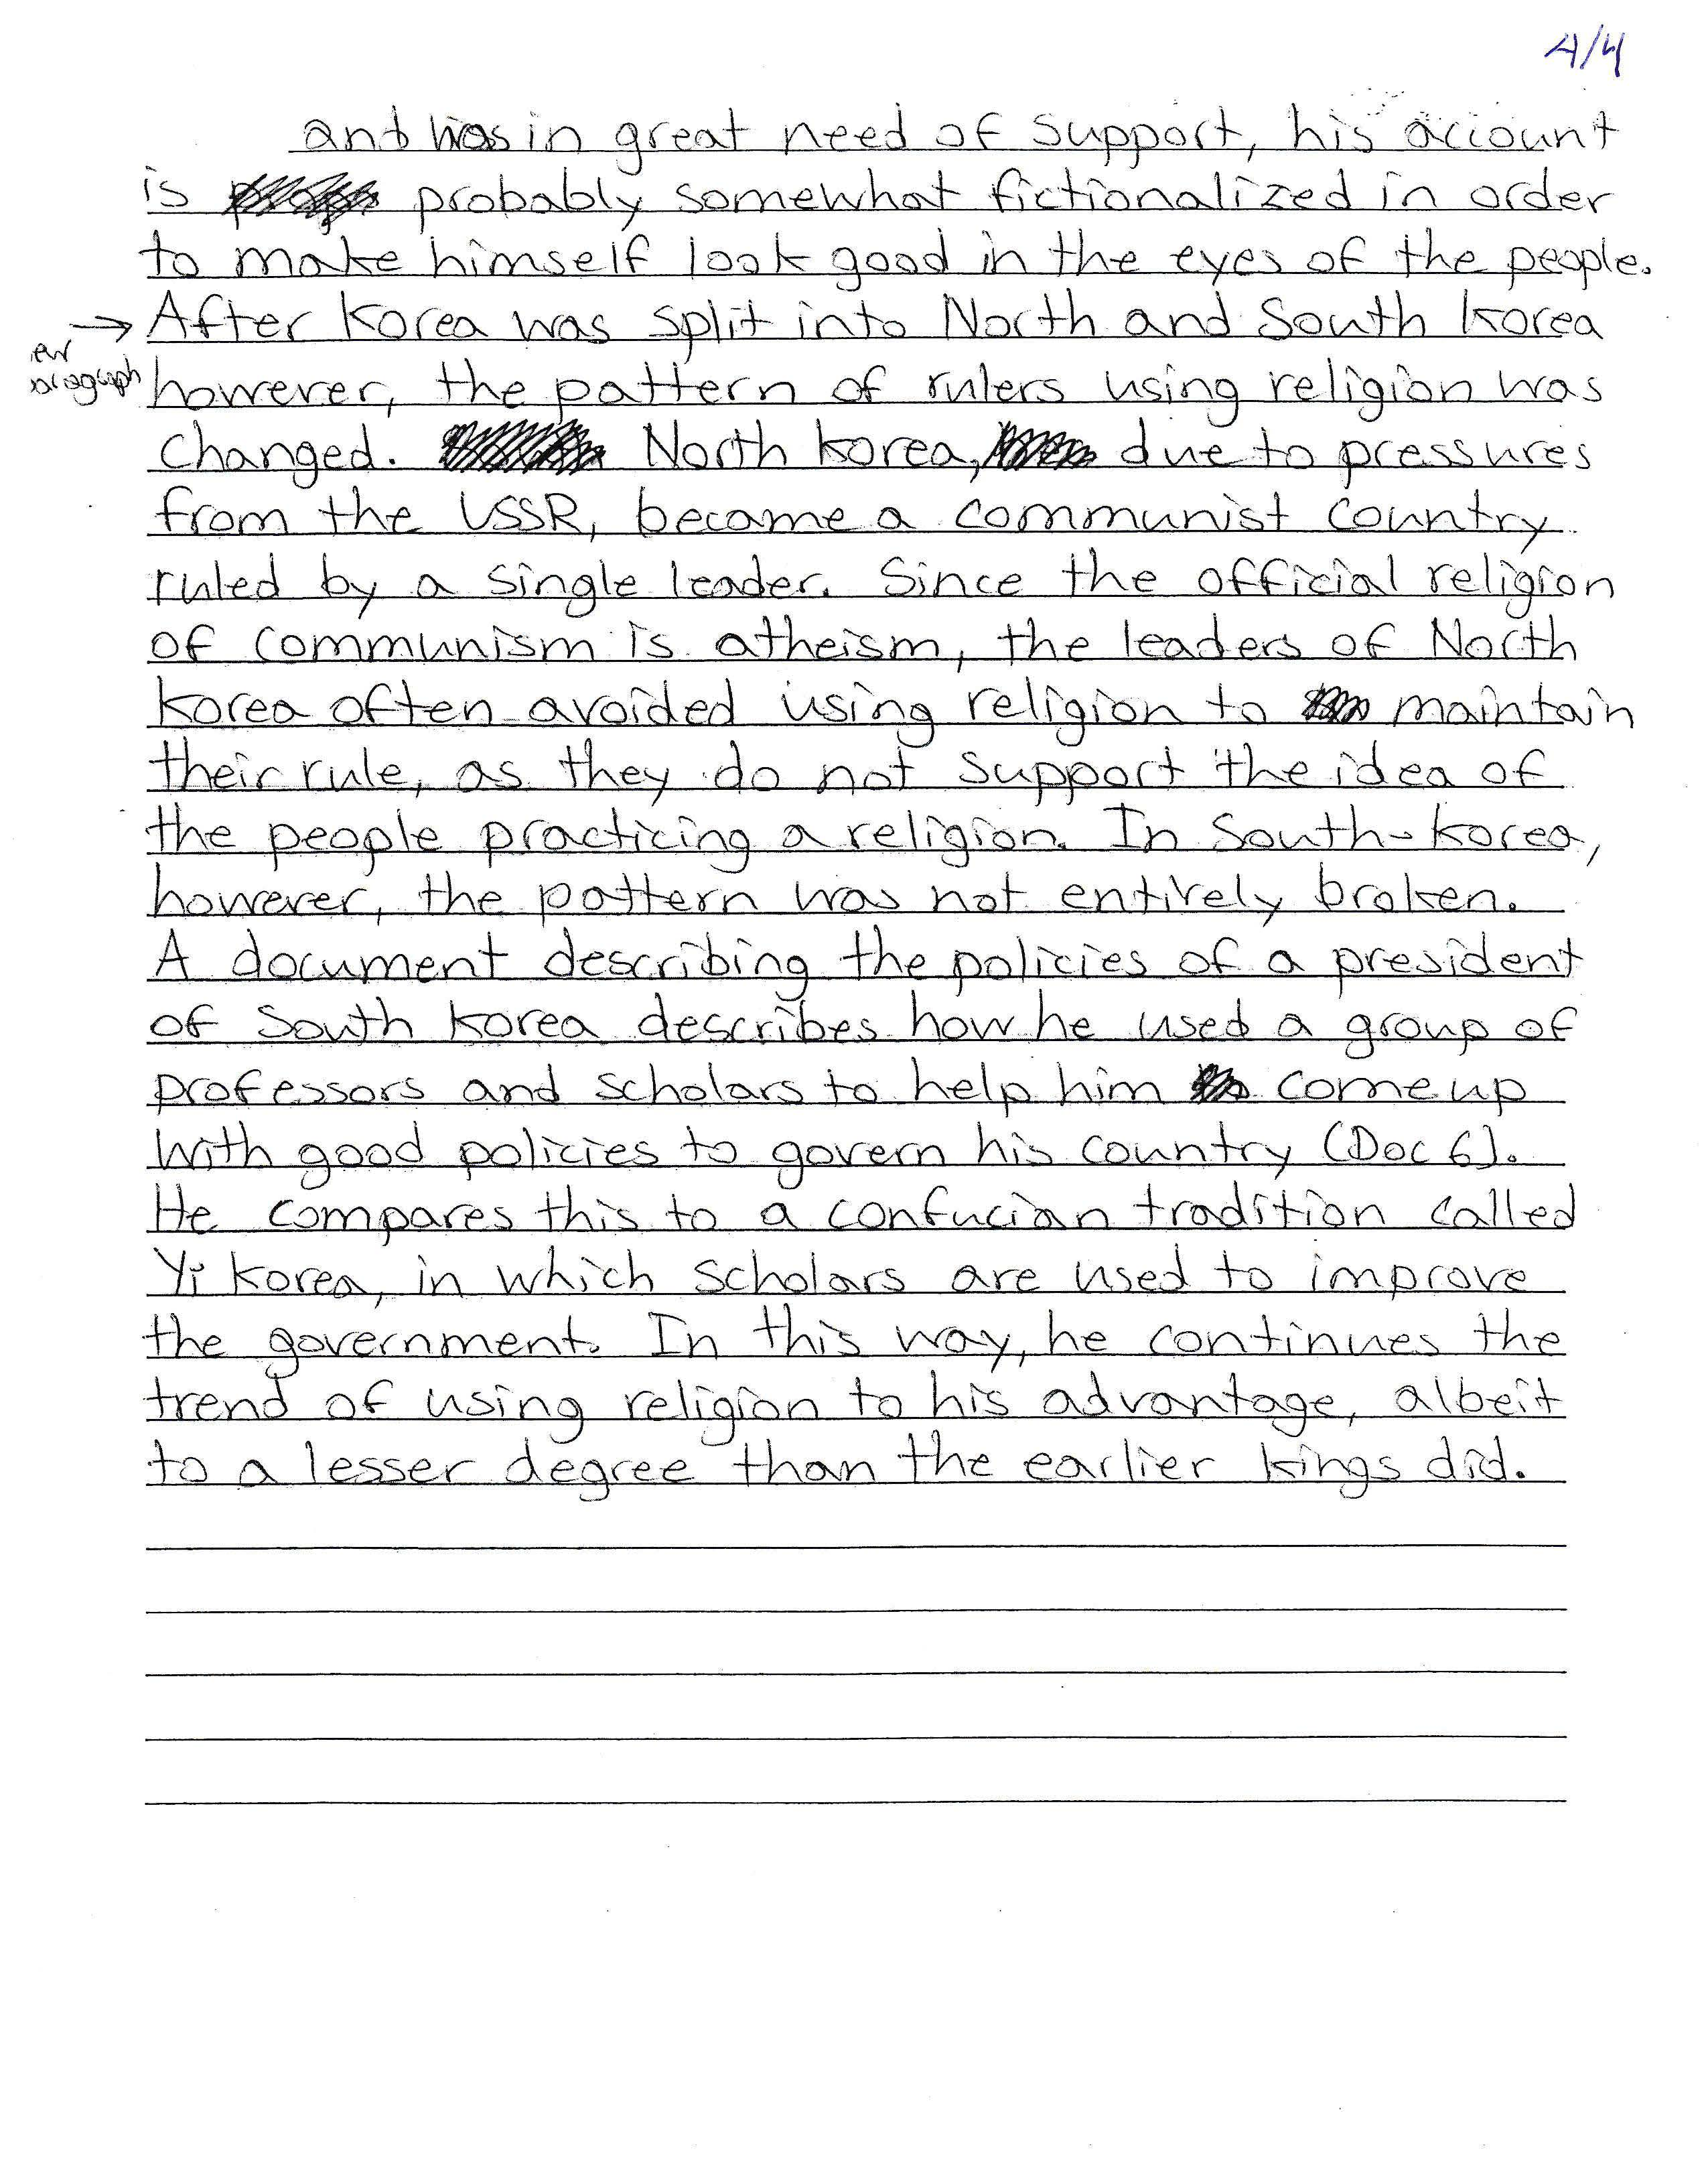 4/4
and was in great need of support, his account
is probably somewhat fictionalized in order
to make himself look good in the eyes of the people.
→ After Korea was split into North and South Korea
ew
aragraph
however, the pattern of rulers using religion was
changed. North Korea, due to pressures
from the USSR, became a communist country
ruled by a single leader. Since the official religion
of communism is atheism, the leaders of North
Korea often avoided using religion to maintain
their rule, as they do not support the idea of
the people practicing a religion. In South Korea,
however, the pattern was not entirely broken.
A document describing the policies of a president
of South Korea describes how he used a group of
professors and scholars to help him come up
with good policies to govern his country (Doc 6).
He compares this to a confucian tradition called
Yi Korea, in which scholars are used to improve
the government. In this way, he continues the
trend of using religion to his advantage, albeit
to a lesser degree than the earlier kings did.